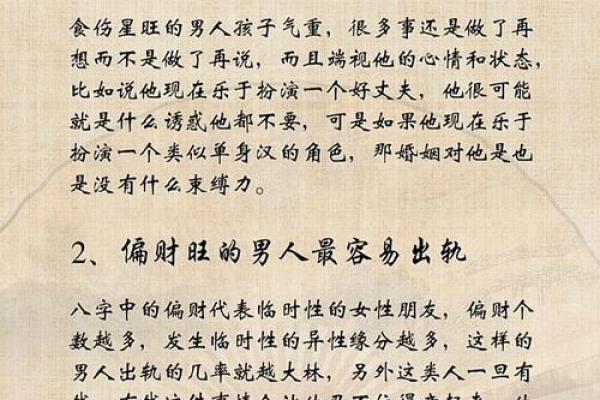 食伤星旺的男人孩子气重，很多事还是做了再
想而不是做了再说，而且端视他的心情和状态，
比如说他现在乐于扮演一个好丈夫，他很可能
就是什么诱惑他都不要，可是如果他现在乐于
扮演一个类似单身汉的角色，那婚姻对他是也
是没有什么束缚力。
2、偏财旺的男人最容易出轨
八字中的偏财代表临时性的女性朋友，偏财个
数越多，发生临时性的异性缘分越多，这样的
男人出轨的几率就越大林，另外这类人一旦有